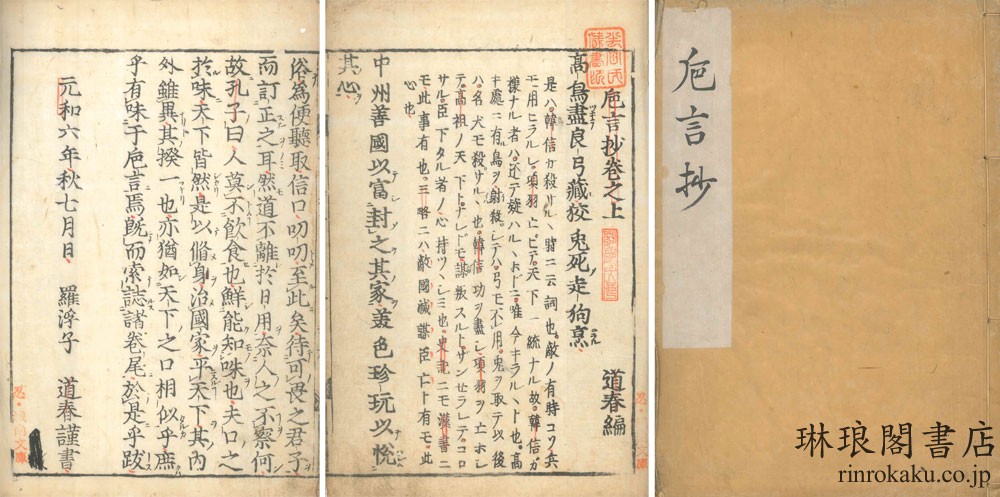 巵言抄
巵言抄卷之上　道春編
高鳥盡良弓藏狡兎死走狗烹
是ハ韓信カ殺サルヽ時ニ云詞也。敵ノ有時コソ兵
モ用ヒラルレ。項羽亡ヒテ天下一統ナル故。韓信カ
樣ナル者ハ。还テ疑ハルヽホドニ。唯今キラルヽト也。高
キ處ニ有鳥ヲ射殺シテハ弓モ不用。兎ヲ取テ以後
ハ名犬モ殺サルヽ也。韓信功ヲ盡シ項羽ヲ亡ホシ
テ。高祖ノ天下トナレドモ。謀叛スルトザンセラレテ。コロ
サル。臣下タル者ノ心持也。史記ニモ漢書ニ
モ此事有也。三略ニハ敵國滅謀臣亡ト有モ。此
心也
中州善國以富封之其家美色珍玩以悅
其心
俗為便聽取信口叨叨至此矣待可畏之君子
而訂正之耳然道不離於日用奈人之不察何
故孔子曰人莫不飲食也鮮能知味也夫口之
於味天下皆然是以脩身治國家平天下其内
外雖異其揆一也亦猶如天下之口相似乎庶
乎有味于巵言焉既而索誌諸卷尾於是乎跋
元和六年秋七月日　羅浮子　道春謹書
琳琅閣書店
rinrokaku.co.jp